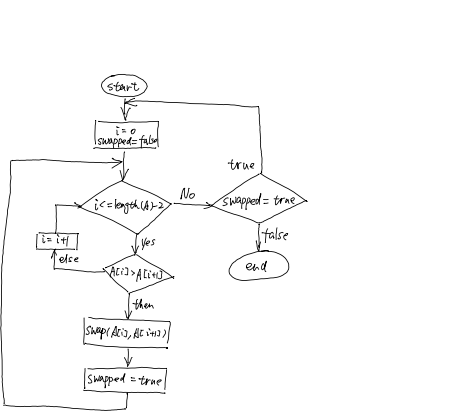 start
i = 0
swapped = false
true
i <= length(A)-2
No
swapped = true
yes
false
i = i+1
else
A[i] > A[i+1]
end
then
swap(A[i], A[i+1])
swapped = true